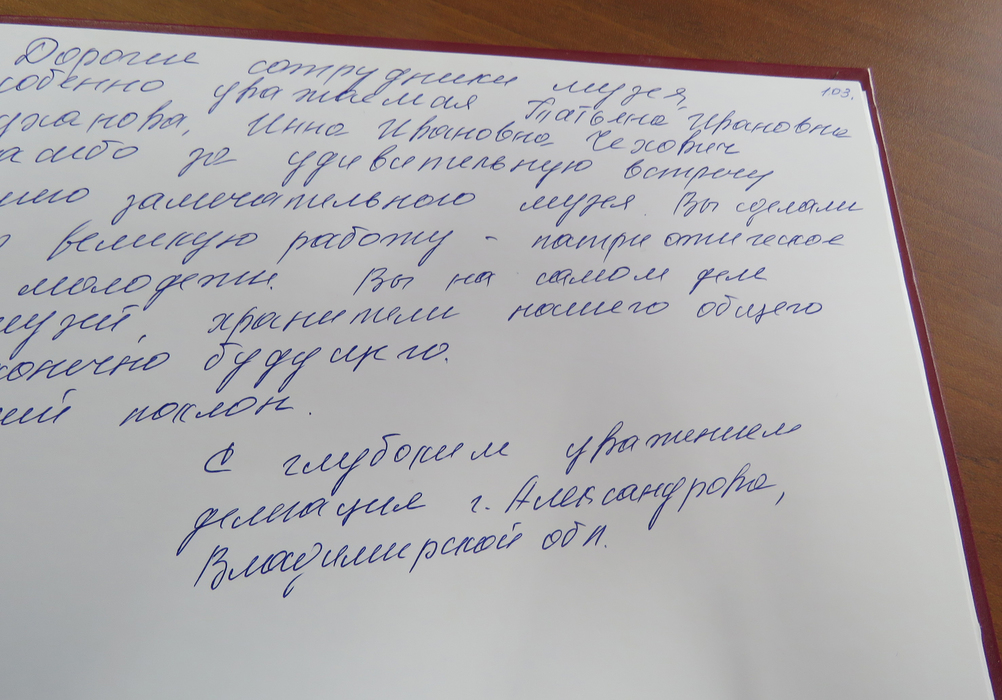 103.
Дорогие сотрудники музея,
собенно уважаемая Татьяна Ивановна
ужанова, Инна Ивановна Чехович
асибо за удивительную встречу
замечательного музея. Вы сделали
великую работу - патриотическое
молодежи. Вы на самом деле
музей, хранители нашего общего
конечно будущего.
ий поклон.
С глубоким уважением
делегация г. Александрова,
Владимирской обл.